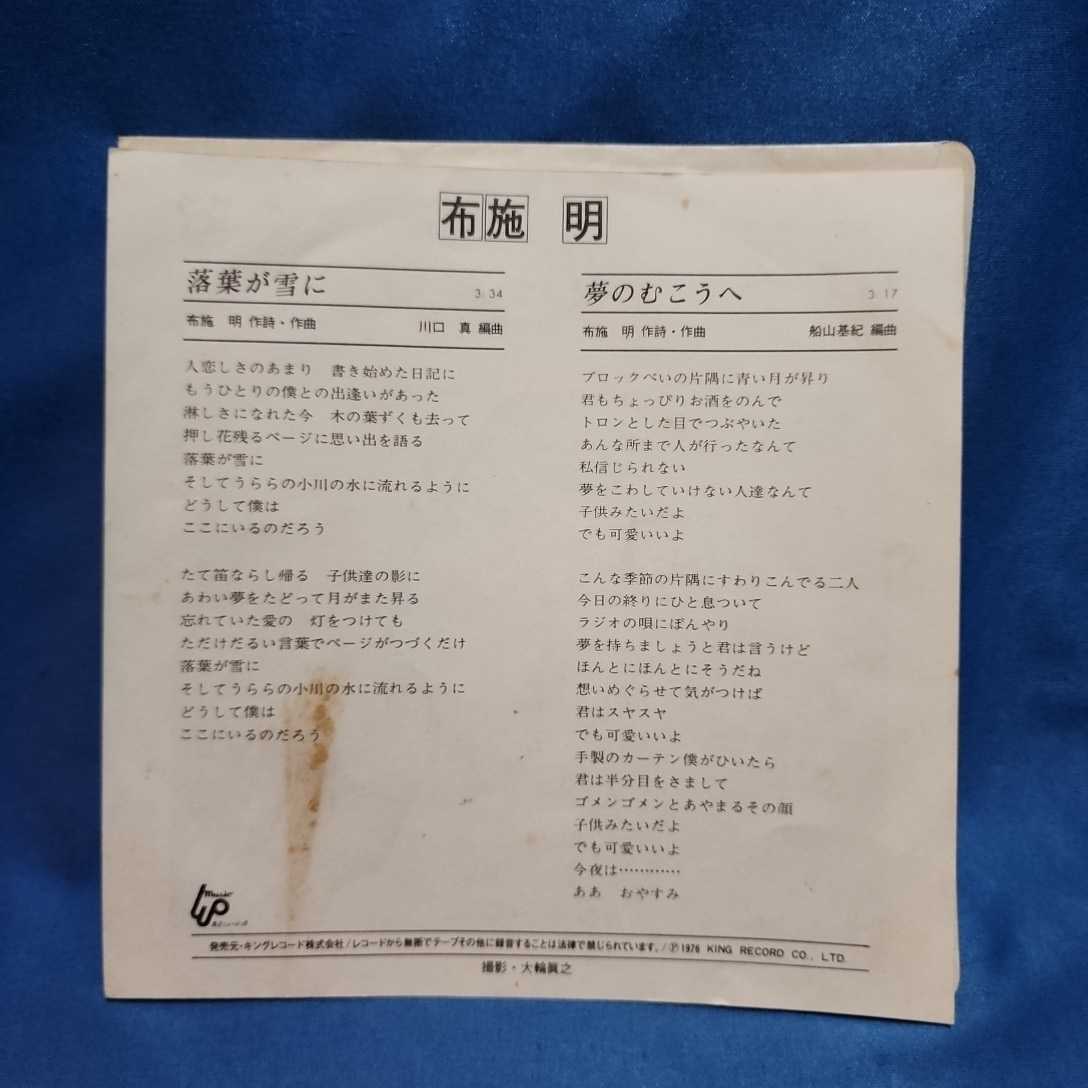 布施 明
落葉が雪に 3:34
布施 明 作詩・作曲 川口 真 編曲
人恋しさのあまり 書き始めた日記に
もうひとりの僕との出逢いがあった
淋しさになれた今 木の葉ずくも去って
押し花残るページに思い出を語る
落葉が雪に
そしてうららの小川の水に流れるように
どうして僕は
ここにいるのだろう
たて笛ならし帰る 子供達の影に
あわい夢をたどって月がまた昇る
忘れていた愛の 灯をつけても
ただけだるい言葉でページがつづくだけ
落葉が雪に
そしてうららの小川の水に流れるように
どうして僕は
ここにいるのだろう
夢のむこうへ 3:17
布施 明 作詩・作曲 船山基紀 編曲
ブロックべいの片隅に青い月が昇り
君もちょっぴりお酒をのんで
トロンとした目でつぶやいた
あんな所まで人が行ったなんて
私信じられない
夢をこわしていけない人達なんて
子供みたいだよ
でも可愛いいよ
こんな季節の片隅にすわりこんでる二人
今日の終りにひと息ついて
ラジオの唄にぼんやり
夢を持ちましょうと君は言うけど
ほんとにほんとにそうだね
想いめぐらせて気がつけば
君はスヤスヤ
でも可愛いいよ
手製のカーテン僕がひいたら
君は半分目をさまして
ゴメンゴメンとあやまるその顔
子供みたいだよ
でも可愛いいよ
今夜は…………
ああ おやすみ
music
発売元・キングレコード株式会社/レコードから無断でテープその他に録音することは法律で禁じられています。/Ⓟ1976 KING RECORD CO., LTD.
撮影・大輪眞之